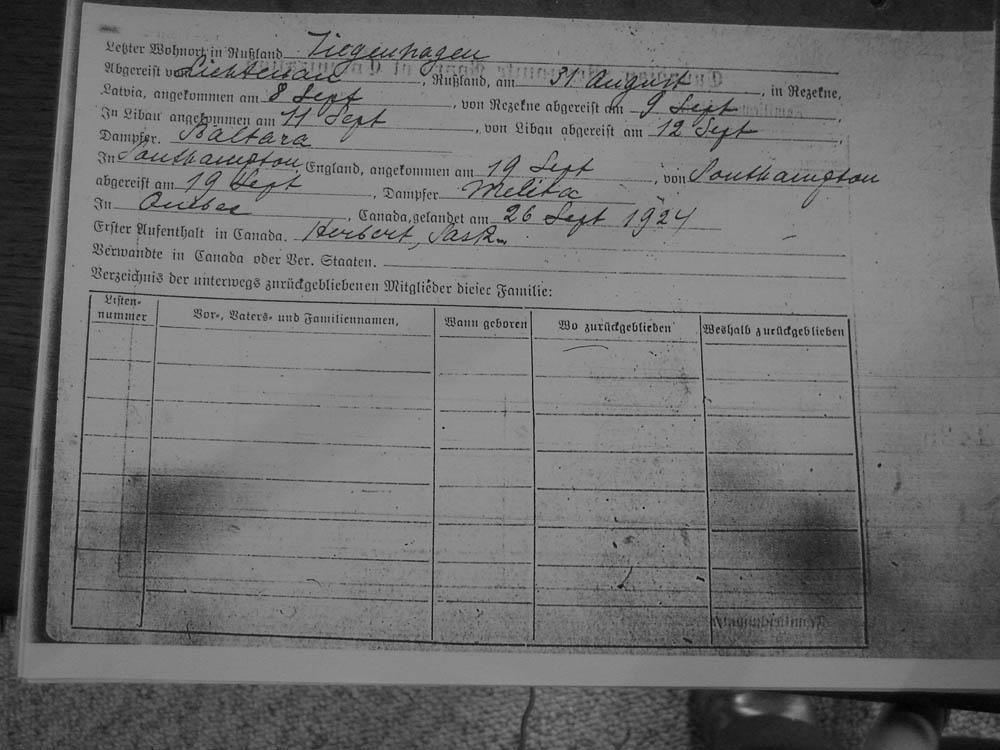 Letzter Wohnort in Rußland Tiegenhagen
Abgereist von Lichtenau, Rußland, am 31 August, in Rezekne,
Latvia, angekommen am 8 Sept, von Rezekne abgereist am 9 Sept
In Libau angekommen am 11 Sept, von Libau abgereist am 12 Sept.
Dampfer. Baltara
In Southampton, England, angekommen am 19 Sept, von Southampton
abgereist am 19 Sept, Dampfer Melita
In Quebec, Canada, gelandet am 26 Sept 1924
Erster Aufenthalt in Canada. Herbert, Sask.
Verwandte in Canada oder Ver. Staaten.
Verzeichnis der unterwegs zurückgebliebenen Mitglieder dieser Familie:
Listen-nummer Vor-, Vaters- und Familiennamen, Wann geboren Wo zurückgeblieben Weshalb zurückgeblieben